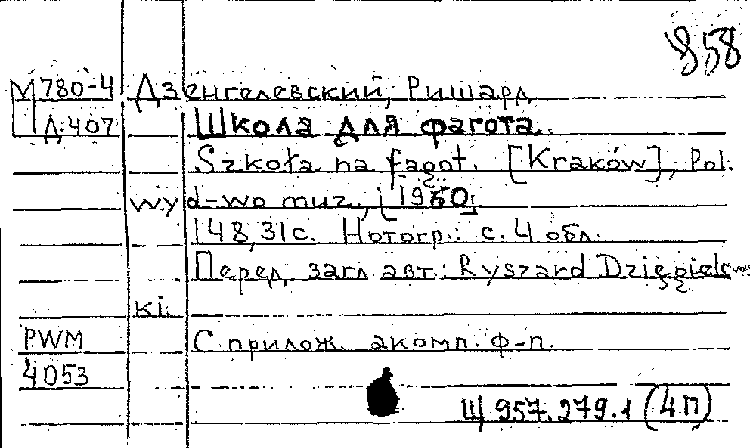 858
М780-4 Дзенгелевский, Ришард
Д.407 Школа для фагота.
Szkoła na fagot. [Kraków], Pol.
wyd-wo muz., [1960]
148,31с. Нотогр.: с. 4 обл.
Перед загл авт: Ryszard Dzięgielews
ki.
PWM С прилож. акомп. ф-п.
4053
Щ 957.279.1 (4П)